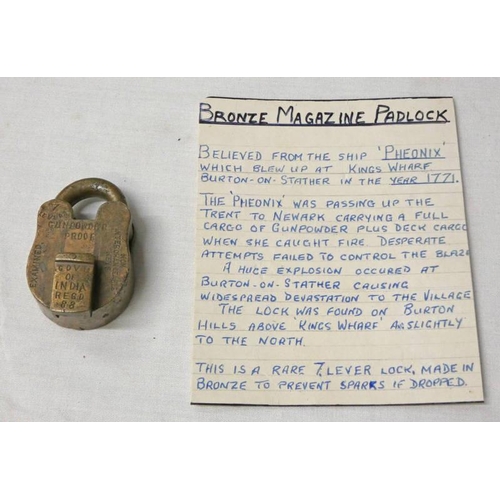 GUNPOWDER
PROOF
EXAMINED
GOVT
OF
INDIA
REGD
88
BRONZE MAGAZINE PADLOCK
BELIEVED FROM THE SHIP 'PHEONIX'
WHICH BLEW UP AT KINGS WHARF
BURTON-ON-STATHER IN THE YEAR 1771.
THE 'PHEONIX' WAS PASSING UP THE
TRENT TO NEWARK CARRYING A FULL
CARGO OF GUNPOWDER PLUS DECK CARGO
WHEN SHE CAUGHT FIRE. DESPERATE
ATTEMPTS FAILED TO CONTROL THE BLAZE
A HUGE EXPLOSION OCCURED AT
BURTON-ON-STATHER CAUSING
WIDESPREAD DEVASTATION TO THE VILLAGE
THE LOCK WAS FOUND ON BURTON
HILLS ABOVE 'KINGS WHARF' SLIGHTLY
TO THE NORTH.
THIS IS A RARE 7, LEVER LOCK, MADE IN
BRONZE TO PREVENT SPARKS IF DROPPED.